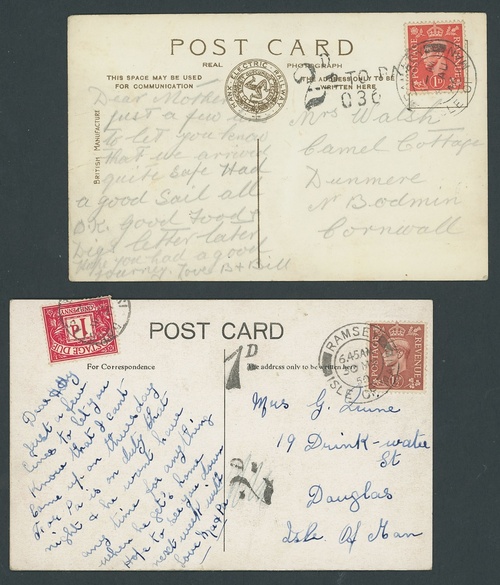 POST CARD
REAL PHOTOGRAPH
THIS SPACE MAY BE USED
FOR COMMUNICATION
THE ADDRESS ONLY TO BE
WRITTEN HERE
BRITISH MANUFACTURE
MANX ELECTRIC RAILWAY
2D
TO PAY
030
POSTAGE REVENUE
Dear Mother
Just a few
to let you know
that we arrived
quite safe Had
a good Sail all
O.K. good Food
Digs letter later
you had a good
journey. love B + Bill
Mrs Walsh
Camel Cottage
Dunmere
Nr Bodmin
Cornwall
POST CARD
For Correspondence
The address only to be written here
POSTAGE DUE
1D
1D
2D
RAMSEY
6.45AM
50
ISLE OF
POSTAGE REVENUE
Just a few
lines to let you
know that I cant
come up on thursday
for Pa is on duty that
night & he wont have
any time for any thing
when he gets home
Hope to see you down
next week will
love
Mrs G. Quine
19 Drink-water
St
Douglas
Isle Of Man